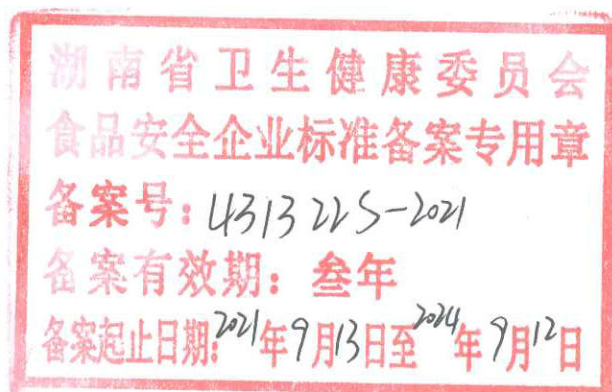 湖南省卫生健康委员会
食品安全企业标准备案专用章
备案号：431322S-2021
备案有效期：叁年
备案起止日期：2021年9月13日至2024年9月12日